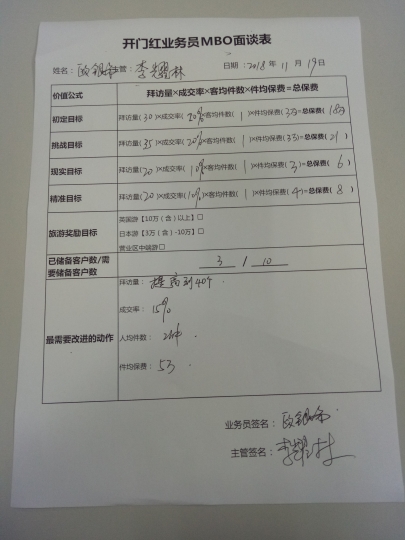 开门红业务员MBO面谈表
姓名：欧银 主管：李耀林 日期：2018年11月19日
价值公式 拜访量×成交率×客均件数×件均保费=总保费
初定目标 拜访量(30)×成交率(20%)×客均件数(1)×件均保费(3万)=总保费(18万)
挑战目标 拜访量(35)×成交率(20%)×客均件数(1)×件均保费(3万)=总保费(21)
现实目标 拜访量(20)×成交率(10%)×客均件数(1)×件均保费(3)=总保费(6)
精准目标 拜访量(20)×成交率(10%)×客均件数(1)×件均保费(4)=总保费(8)
旅游奖励目标
英国游【10万（含）以上】□
日本游【3万（含）-10万】□
营业区中端游□
已储备客户数/需要储备客户数 3 / 10
最需要改进的动作
拜访量：提高到40个
成交率：15%
人均件数：2件
件均保费：5万
业务员签名：欧银
主管签名：李耀林